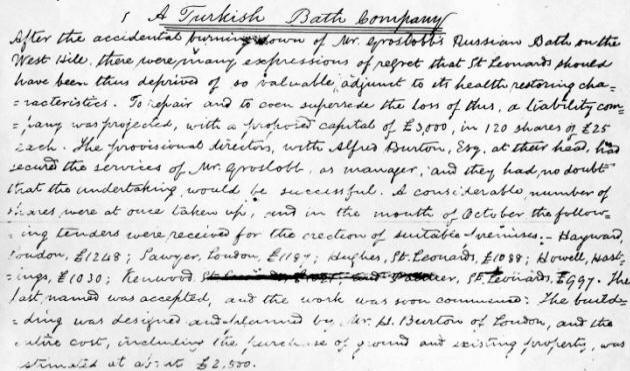 A Turkish Bath Company
After the accidental burning down of Mr. Groslobb's Russian Bath on the
West Hill, there were many expressions of regret that St Leonards should
have been thus deprived of so valuable adjunct to its health restoring cha-
=racteristics. To repair and to even supersede the loss of this, a liability com-
=pany was projected, with a proposed capital of £3,000, in 120 shares of £25
each. The provisional directors, with Alfred Burton, Esq. at their head, had
secured the services of Mr. Groslobb, as manager, and they had, no doubt
that the undertaking would be successful. A considerable number of
shares were at once taken up, and in the month of October the follow-
=ing tenders were received for the erection of suitable premises. – Hayward,
London, £1248; Sawyer, London, £1187; Hughes, St. Leonards, £1088; Howell, Hast-
=ings, £1030; Kenwood St. Leonards, £997. The
last named was accepted, and the work was soon commenced. The build-
=ding was designed and planned by Mr. H. Burton of London, and the
entire cost, including the purchase of ground and existing property, was
estimated at about £2,500.